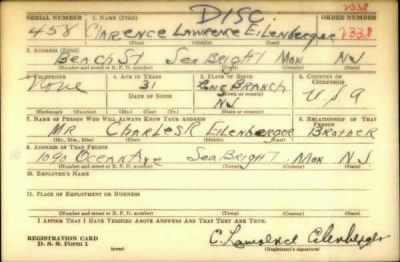 DISC
2338
SERIAL NUMBER 1. NAME (Print)
458 Clarence Lawrence Eilenberger 2338
(First) (Middle) (Last)
2. ADDRESS (Print)
Beach St Sea Bright Mon NJ
(Number and street or R. F. D. number) (Town) (County) (State)
3. TELEPHONE 4. AGE IN YEARS 5. PLACE OF BIRTH 6. COUNTRY OF CITIZENSHIP
None 31 Long Branch
DATE OF BIRTH (Town or county)
NJ U.S.A
(Exchange) (Number) (Mo.) (Day) (Yr.) (State or country)
7. NAME OF PERSON WHO WILL ALWAYS KNOW YOUR ADDRESS 8. RELATIONSHIP OF THAT PERSON
Mr Charles R Eilenberger Brother
(Mr., Mrs., Miss) (First) (Middle) (Last)
9. ADDRESS OF THAT PERSON
1090 Ocean Ave Sea Bright Mon NJ
(Number and street or R. F. D. number) (Town) (County) (State)
10. EMPLOYER'S NAME
11. PLACE OF EMPLOYMENT OR BUSINESS
(Number and street or R. F. D. number) (Town) (County) (State)
I AFFIRM THAT I HAVE VERIFIED ABOVE ANSWERS AND THAT THEY ARE TRUE.
REGISTRATION CARD
D. S. S. Form 1 (over) C. Lawrence Eilenberger
(Registrant's signature)